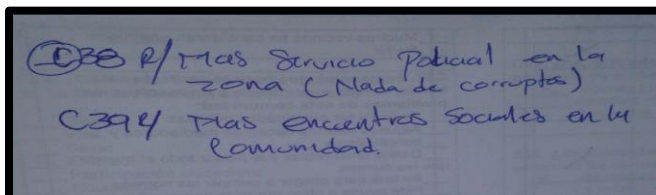 C38 R/ Mas Servicio Policial en la
zona (Nada de corruptos)
C39 R/ Mas encuentros Sociales en la
Comunidad.